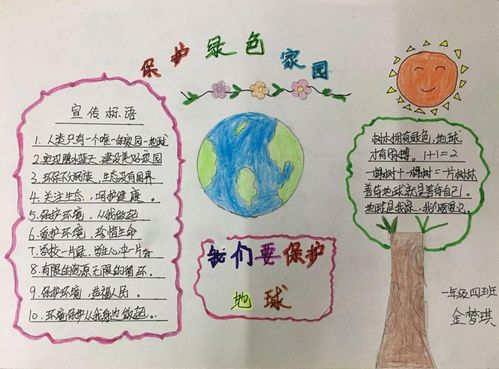 保护绿色家园
宣传标语
1.人类只有一个唯一的家园-地球
2.
3.环保不分民族，生态没有国界
4.关注生态，呵护健康。
5.保护环境，从我做起
6.爱护环境，珍惜生命
7.
8.有限的资源无限的循环。
9.保护环境，造福人民。
10.环境保护从我身边做起。
我们要保护
地球
树木拥有绿色，地球
才有脉搏。1+1=2
一棵树+一棵树=一片树林
善待地球就是善待自己！
地球是我家，我们
一年级四班
金梦琪